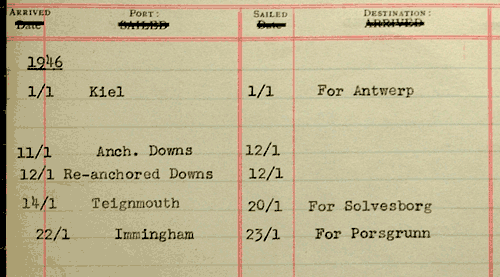 ARRIVED PORT: SAILED DESTINATION:
Date SAILED Date ARRIVED
1946
1/1 Kiel 1/1 For Antwerp
11/1 Anch. Downs 12/1
12/1 Re-anchored Downs 12/1
14/1 Teignmouth 20/1 For Solvesborg
22/1 Immingham 23/1 For Porsgrunn